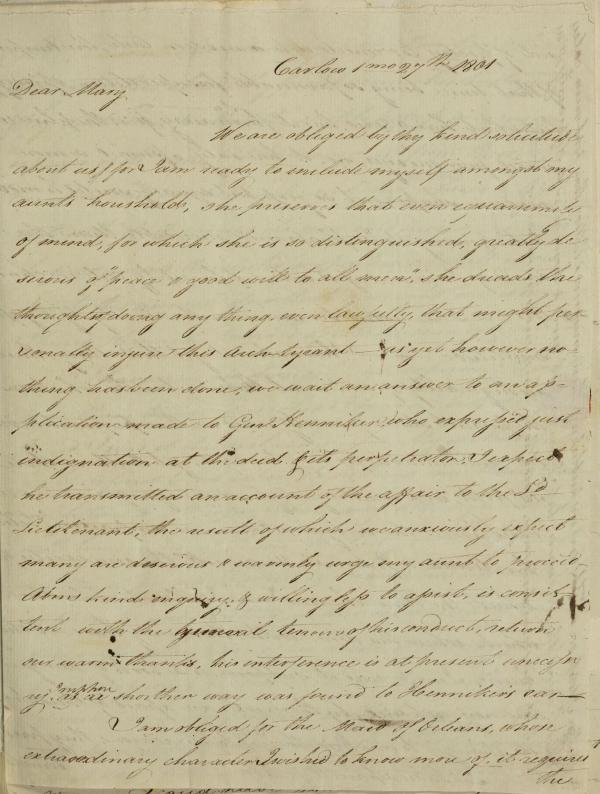 Carlow 1 mo 27th 1801
Dear Mary
We are obliged by thy kind solicitude
about us, for I am ready to include myself amongst my
aunt's houshold, she preserves that even equanimity
of mind, for which she is so distinguished, greatly de
sirous of "peace & good will to all men", she dreads the
thought of doing any thing, even lawfully, that might per
sonally injure this Arch tyrant — as yet however no-
thing has been done, we wait an answer to an ap-
plication made to Genl Henniker, who express'd just
indignation at the deed & its perpetrator, I expect
he transmitted an account of the affair to the Ld
Lieutenant, the result of which we anxiously expect
many are desirous & warmly urge my aunt to proceed-
Abms kind enquiry, & willingness to assist, is consis
tent with the general tenour of his conduct, return
our warm thanks, his interference is at present unnecessa
ry, as a shorther way was found to Henniker's ear—
I am obliged for the Maid of Orleans, whose
extraordinary character I wished to know more of, it requires
the